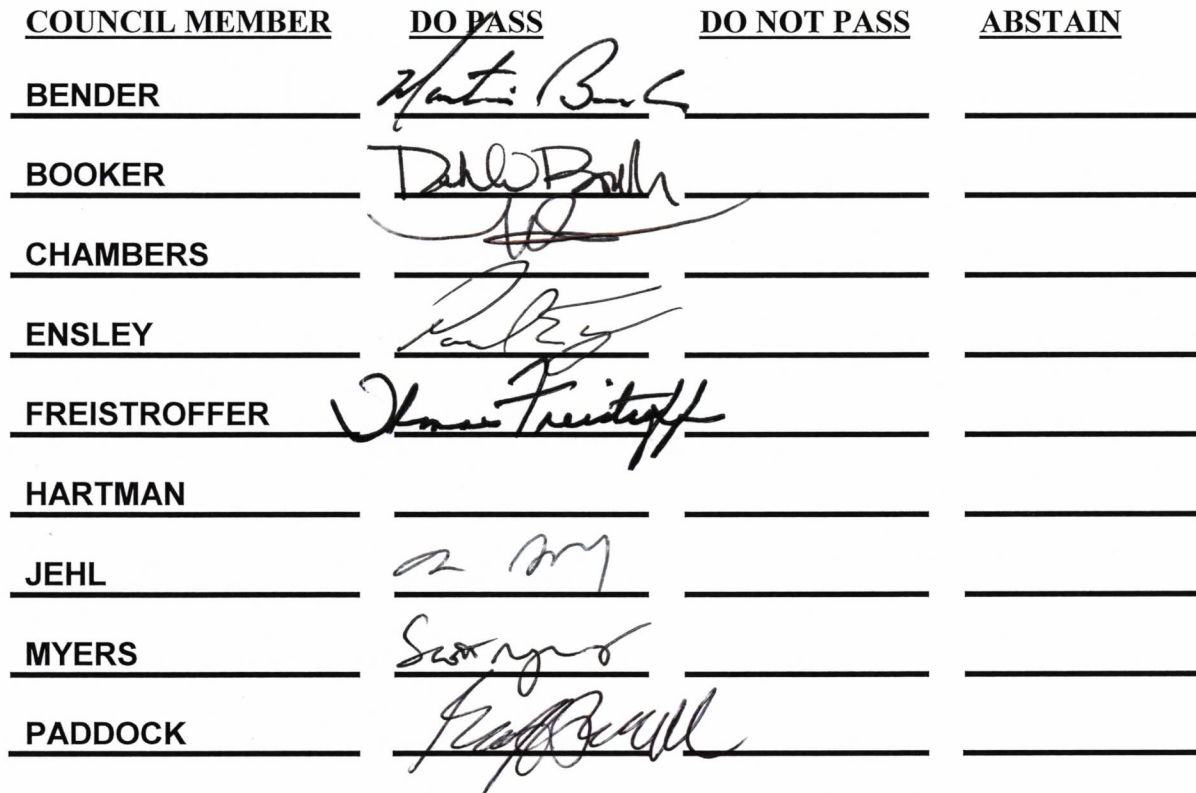 COUNCIL MEMBER DO PASS DO NOT PASS ABSTAIN
BENDER Martin
BOOKER
CHAMBERS
ENSLEY Paul
FREISTROFFER Thomas Freistroff
HARTMAN
JEHL
MYERS Scott Myers
PADDOCK